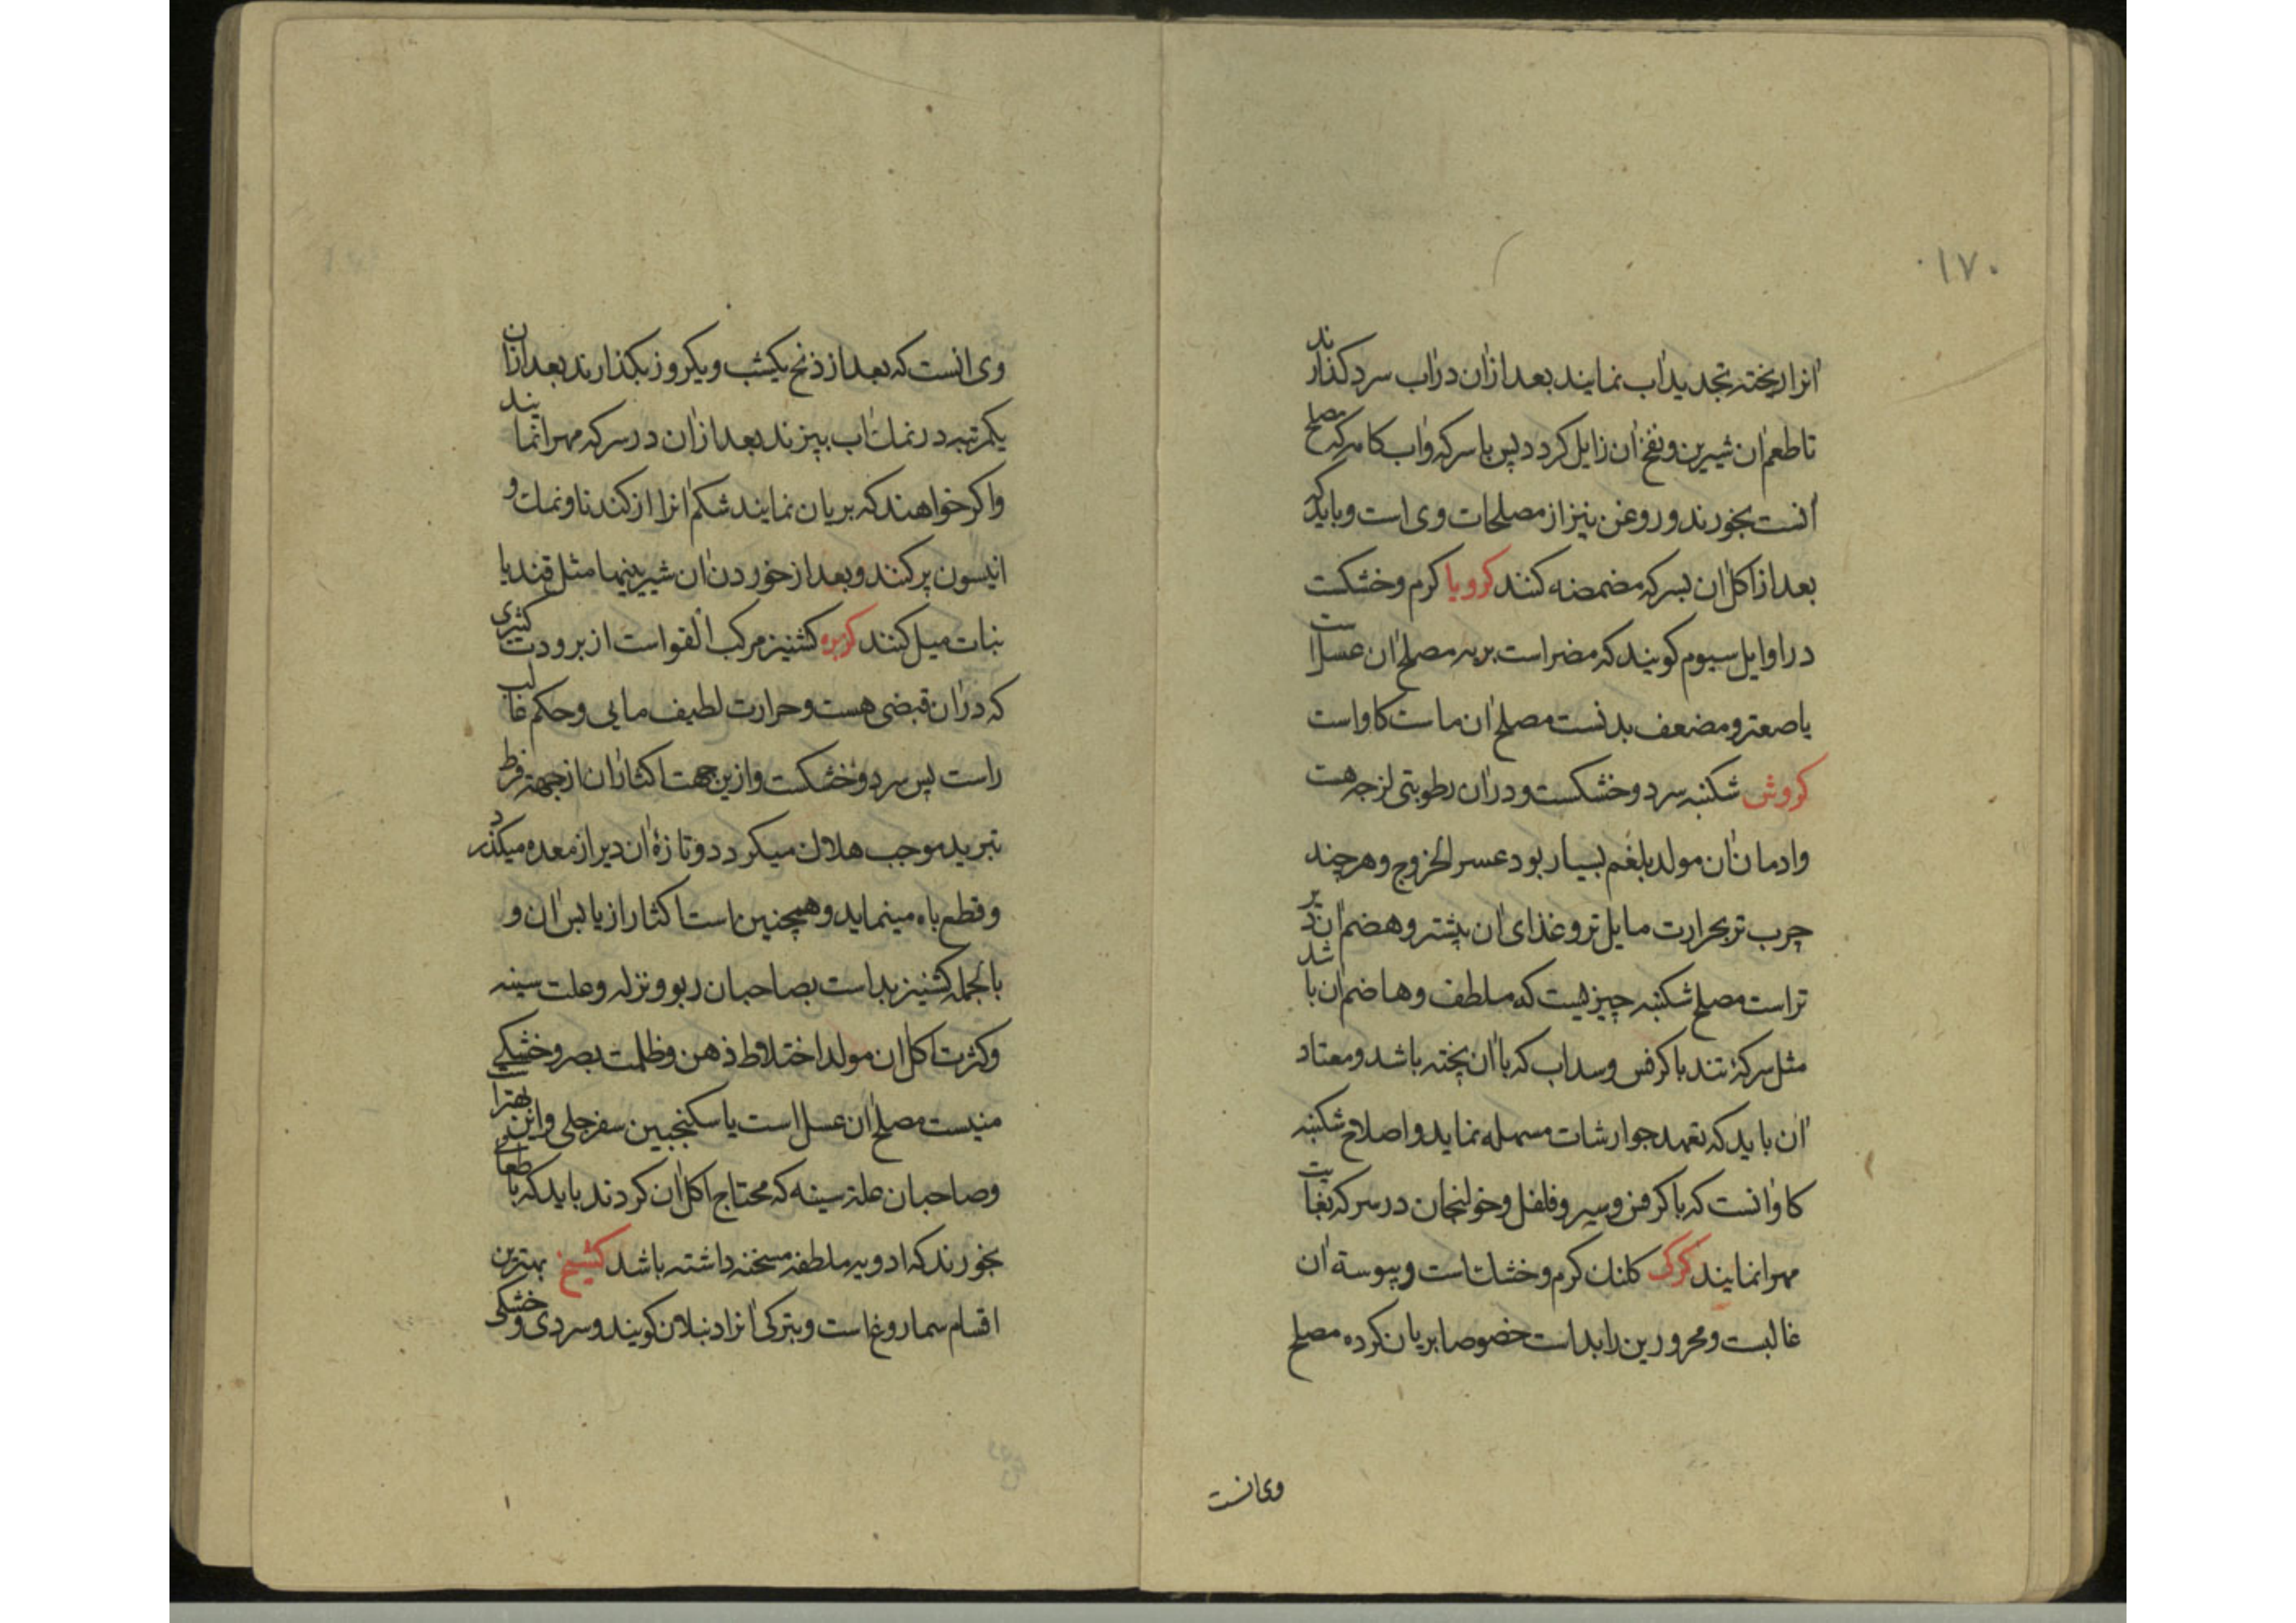 ۱۷۰
انرا ریخته تجدید اب نمایند بعد ازان دراب سرد کذارند
تا طعم ان شیرین و نفخ ان زایل کردد پس با سرکه واب کامه که مصلح
انست بخورند و روغن نیز از مصلحات وی است و باید که
بعد از اکل ان بسرکه مضمضه کنند کرویا کرم و خشکست
در اوایل سیوم کویند که مضر است بریه مصلح ان عسل است
یا صعتر و مضعف بدنست مصلح ان ماست کاو است
کروش شکنبه سرد و خشکست و دران رطوبتی لزجه هست
و ادمان ان مولد بلغم بسیار بود عسر الخروج و هر چند
چرب تر بحرارت مایل تر و غذای ان بیشتر و هضم ان دیر
تر است مصلح شکنبه چیزیست که ملطف و هاضم ان باشد
مثل سرکهٔ تند با کرفس و سداب که با ان پخته باشد و معتاد
ان باید که تعهد جوارشات مسهله نماید و اصلاح شکنبه
کاو انست که با کرفس و سیر و فلفل و خولنجان در سرکه بغایت
مهرا نمایند کرکی کلنک کرم و خشک است و یبوسة ان
غالبست و محرورین را بد است خصوصا بریان کرده مصلح
وی انست
وی انست که بعد از ذبح یکشب و یکروز بکذارند بعد ازان
یکمرتبه در نمک اب بپزند بعد ازان در سرکه مهرا نمایند
و اکر خواهند که بریان نمایند شکم انرا از کندنا و نمک و
انیسون پر کنند و بعد از خوردن ان شیرینیها مثل قند یا
نبات میل کنند کزبره کشنیز مرکب القوا است از برودت کثیری
که دران قبضی هست و حرارت لطیف مایی و حکم غالب
راست پس سرد و خشکست و ازین جهت اکثار ان از جهة فرط
تبرید موجب هلاک میکردد و تازهٔ ان دیر از معده میکذرد
و قطع باه مینماید و همچنین است اکثار از یابس ان و
بالجمله کشنیز بد است بصاحبان ربو و نزله و علت سینه
و کثرت اکل ان مولد اختلاط ذهن و ظلمت بصر و خشکی
منیست مصلح ان عسل است یا سکنجبین سفرجلی و این بهتر است
و صاحبان علة سینه که محتاج اکل ان کردند باید که با طعامی
بخورند که ادویه ملطفه مسخنه داشته باشد کشیخ بهترین
اقسام سماروغ است و بترکی انرا دنبلان کویند و سردی و خشکی